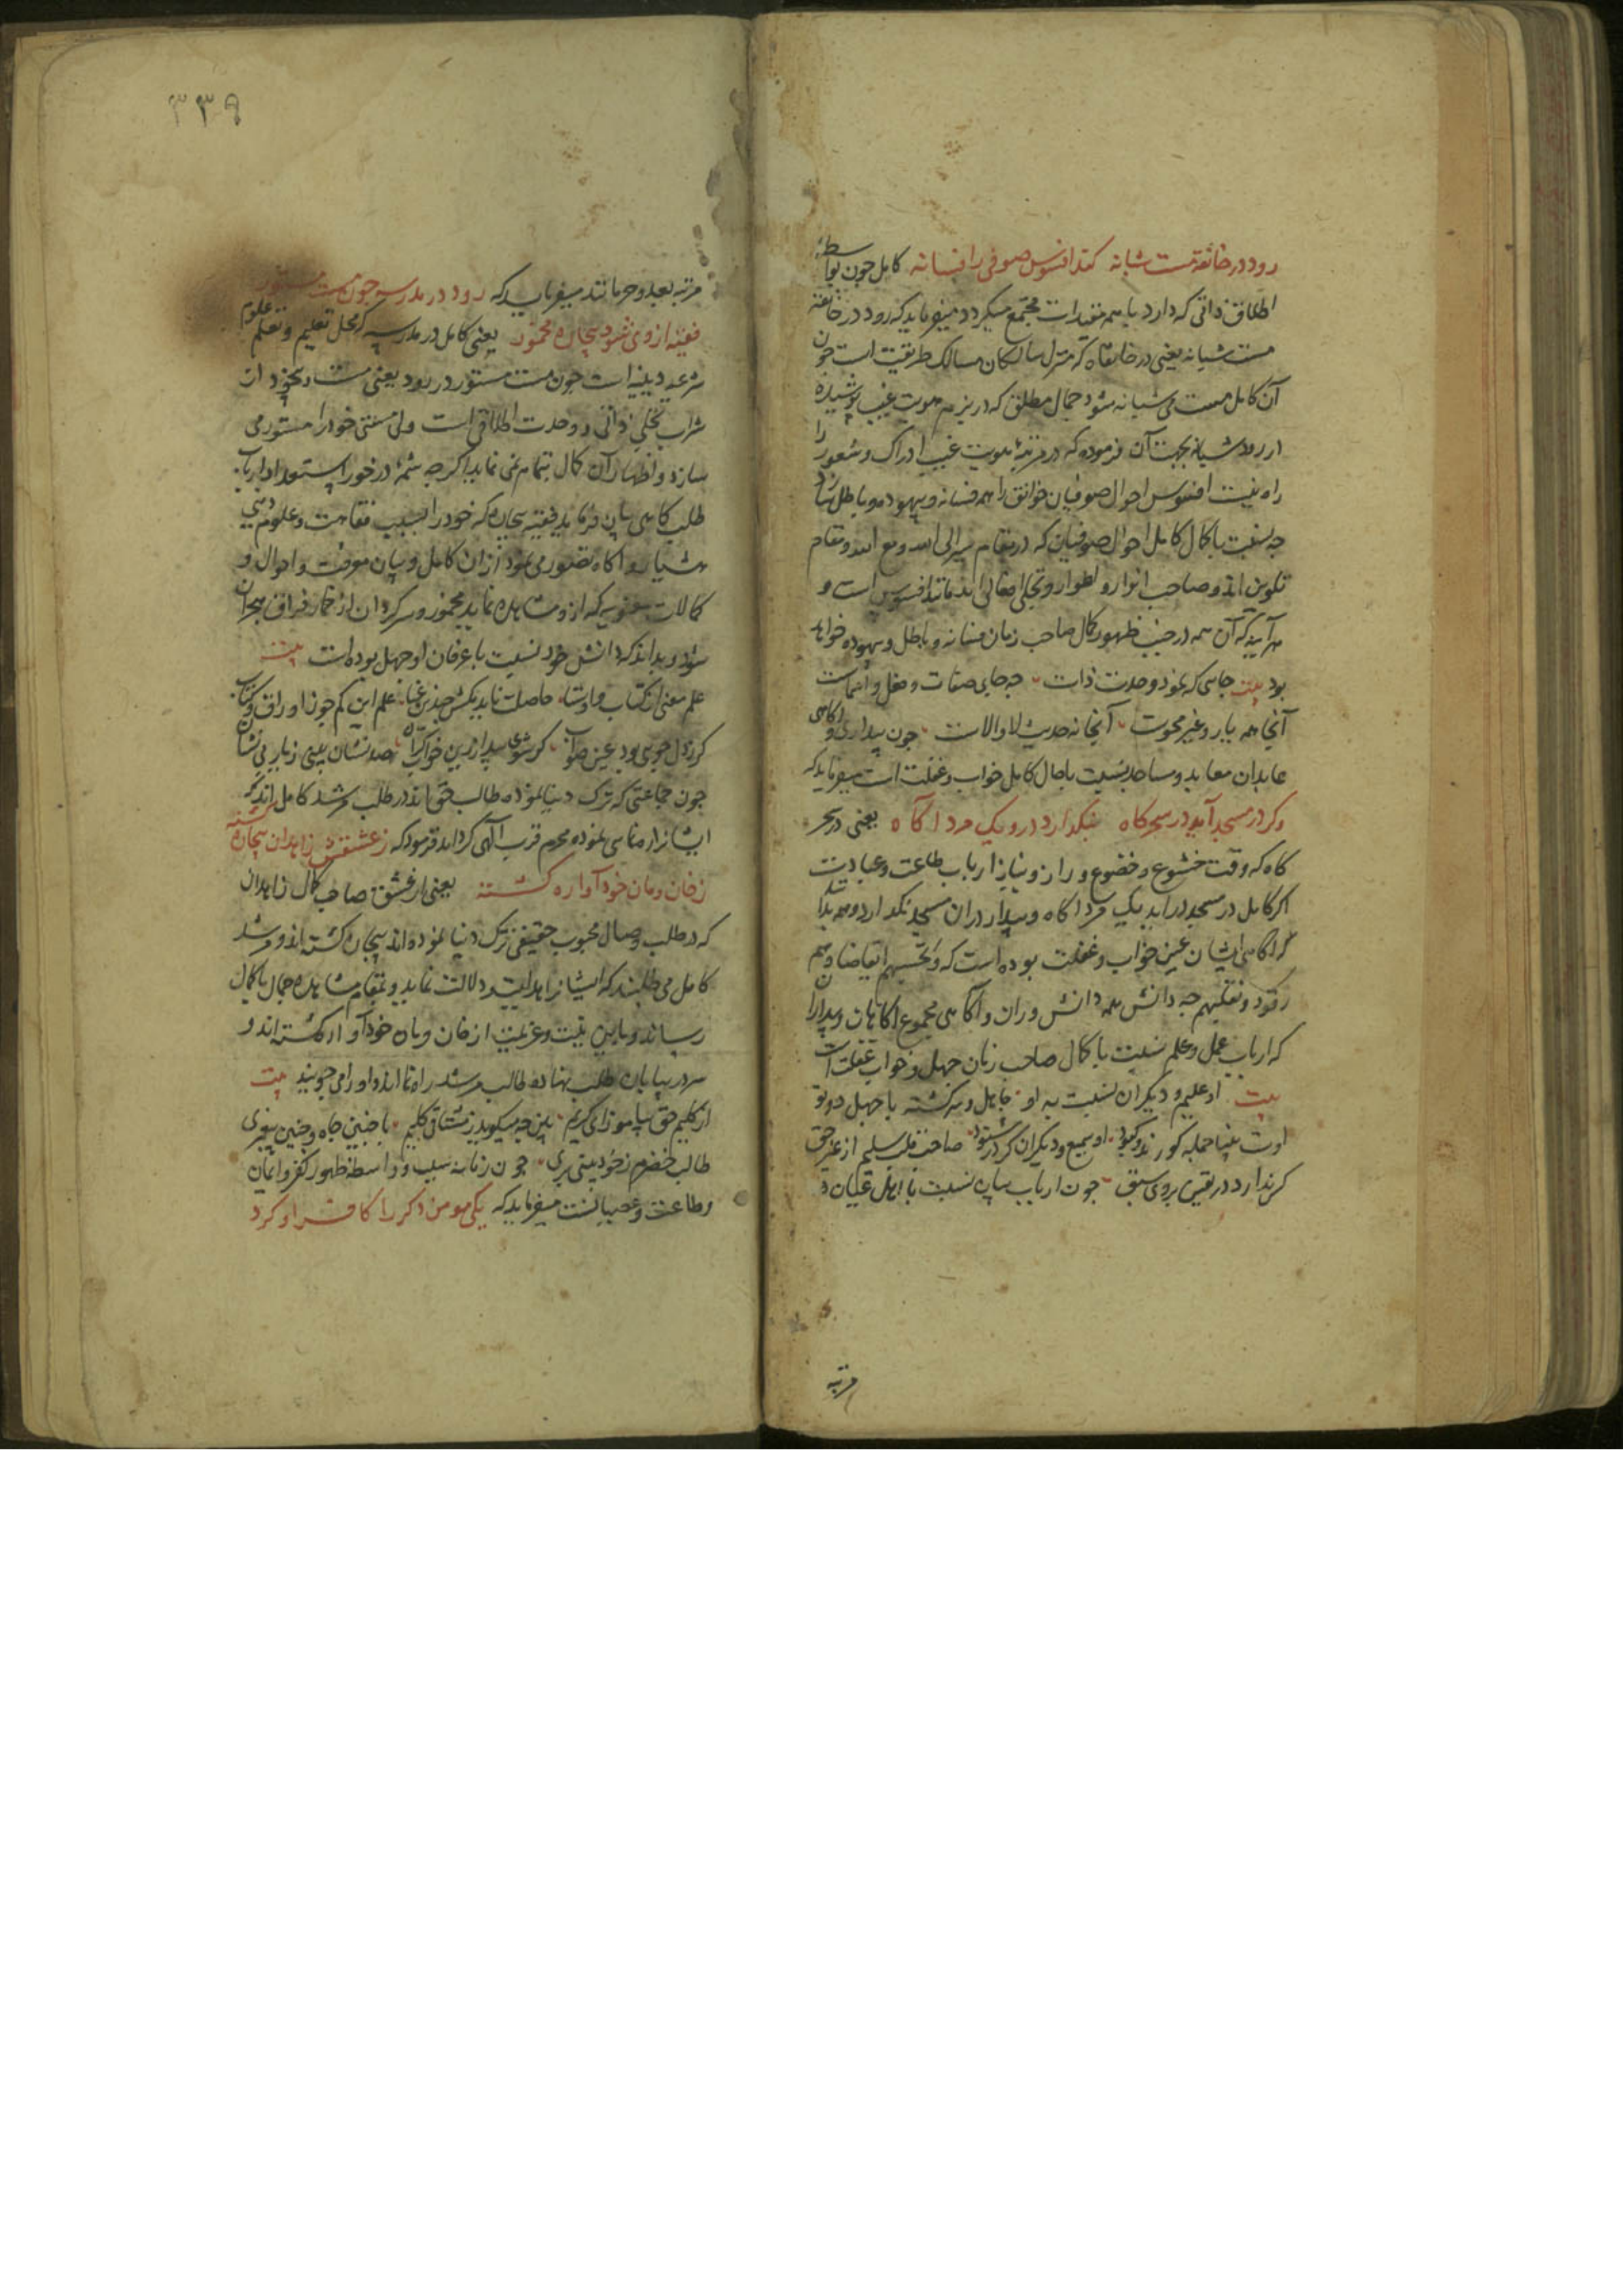 رود در خانقه مست شبانه کند افسوس صوفی را فسانه کامل چون بواسطهٔ
اطلاق ذاتی که دارد با همه مقیدات مجتمع میکردد میفرماید که رود در خانقه
مست شبانه یعنی در خانقاه که منزل سالکان مسالک طریقت است چون
آن کامل مست می شبانه شود جمال مطلق که در بزم هویت غیب پوشیده
از رود شبانه بجهت آن فرموده که در مرتبهٔ هویت غیب ادراک و شعور را
راه نیست افسوس احوال صوفیان خوانق را همه فسانه و بیهوده و باطل سازد
چه نسبت با کمال کامل احوال صوفیان که در مقام سیر الی الله و مع الله و مقام
تلوین اند و صاحب انوار و اطوار و تجلی افعالی اند مانند افسوس است و
هر آینه که آن همه در جنب ظهور کمال صاحب زمان فسانه و باطل و بیهوده خواهد
بود بیت جایی که بود وحدت ذات چه جای صفات و فعل و اسماست
آنجا همه یار و غیر محوست آنجا نه حدیث لا و الاست چون بیداری و آکاهی
عابدان معابد و مساجد نسبت باحال کامل خواب و غفلت است میفرماید که
وکر در مسجد آید در سحرکاه بنکذارد درو یک مرد آکاه یعنی در سحر
کاه که وقت خشوع و خضوع و راز و نیاز ارباب طاعت و عبادت
اکر کامل در مسجد در آید یک مرد آکاه و بیدار در ان مسجد نکذارد و همه بدانند
که آکاهی ایشان عین خواب و غفلت بوده است که و تحسبهم ایقاضا و هم
رقود و نقلبهم چه دانش همه دانش وران و آکاهی مجموع آکاهان و بیداران
که ارباب عمل و علم نسبت با کمال صاحب زمان جهل و خواب غفلت است
بیت او علیم و دیکران نسبت به او جاهل و سرکشته با جهل دوتو
اوست بینا جمله کورند و کبود او سمیع و دیکران کر در شنود صاحب قلب سلیم از غیر حق
کر ندارد در یقین بروی سبق چون ارباب بیان نسبت با اهل عیان در
مرتبه
۳۳۹
مرتبه بعد و حرمانند میفرماید که رود در مدرسه چون مست مستور
فقیه از وی شود بیچاره مخمور یعنی کامل در مدرسه که محل تعلیم و تعلم علوم
شرعیه دینیه است چون مست مستور در رود یعنی مست و بیخود از
شراب تجلی ذاتی و وحدت اطلاقی است ولی مستی خود را مستور می
سازد و اظهار آن کمال بتمام نمی نماید اکرچه شمهٔ درخور استعداد ارباب
طلب کاهی بیان فرماید فقیه بیچاره که خود را بسبب فقاهت و علوم دینی
هشیار و آکاه تصور می نمود از آن کامل و بیان معرفت و احوال و
کمالات معنویه که ازو مشاهده نماید مخمور و سرکردان از خمار فراق و هجران
شود و بداند که دانش خود نسبت با عرفان او جهل بوده است بیت
علم معنی از کتاب و اوستا حاصلت ناید بکش چندین عنا علم این کم جو ز اوراق و کتاب
کر ز دل جویی بود عین صواب کر شوی بیدار ازین خواب کران صد نشان بینی ز یار بی نشان
چون جماعتی که ترک دنیا نموده طالب حق اند در طلب مرشد کامل اند که
ایشانرا رهنمایی نموده محرم قرب الهی کرداند فرمود که ز عشقش زاهدان بیچاره کشته
ز خان و مان خود آواره کشته یعنی از عشق صاحب کمال زاهدان
که در طلب وصال محبوب حقیقی ترک دنیا نموده اند بیچاره کشته اند و مرشد
کامل می طلبند که ایشانرا هدایت و دلالت نماید و بمقام مشاهده جمال با کمال
رساند و باین نیت و عزیمت از خان و مان خود آواره کشته اند و
سر در بیابان طلب نهاده طالب مرشد راه نما اند و او را می جویند بیت
از کلیم حق بیاموز ای کریم بین چه میکوید ز مشتاقی کلیم با چنین جاه و چنین پیغمبری
طالب خضرم ز خودبینی بری چون زمانه سبب و واسطه ظهور کفر و ایمان
و طاعت و عصیانست میفرماید که یکی مومن دکر را کافر او کرد